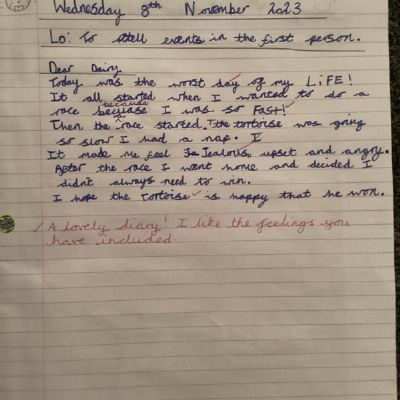 Wednesday 8th November 2023
Lo: To retell events in the first person.
Dear Dairy,
Today was the worst day of my LiFE!
It all started when I wanted to do a
because
race becluase I was so FaSt!
Then the race started. The tortoise was going
so slow I had a nap. I
It made me feel so Jealous, upset and angry.
After the race I went home and decided I
didnt always need to win.
I hope the Tortoise is happy that he won.
A lovely diary! I like the feelings you
have included.